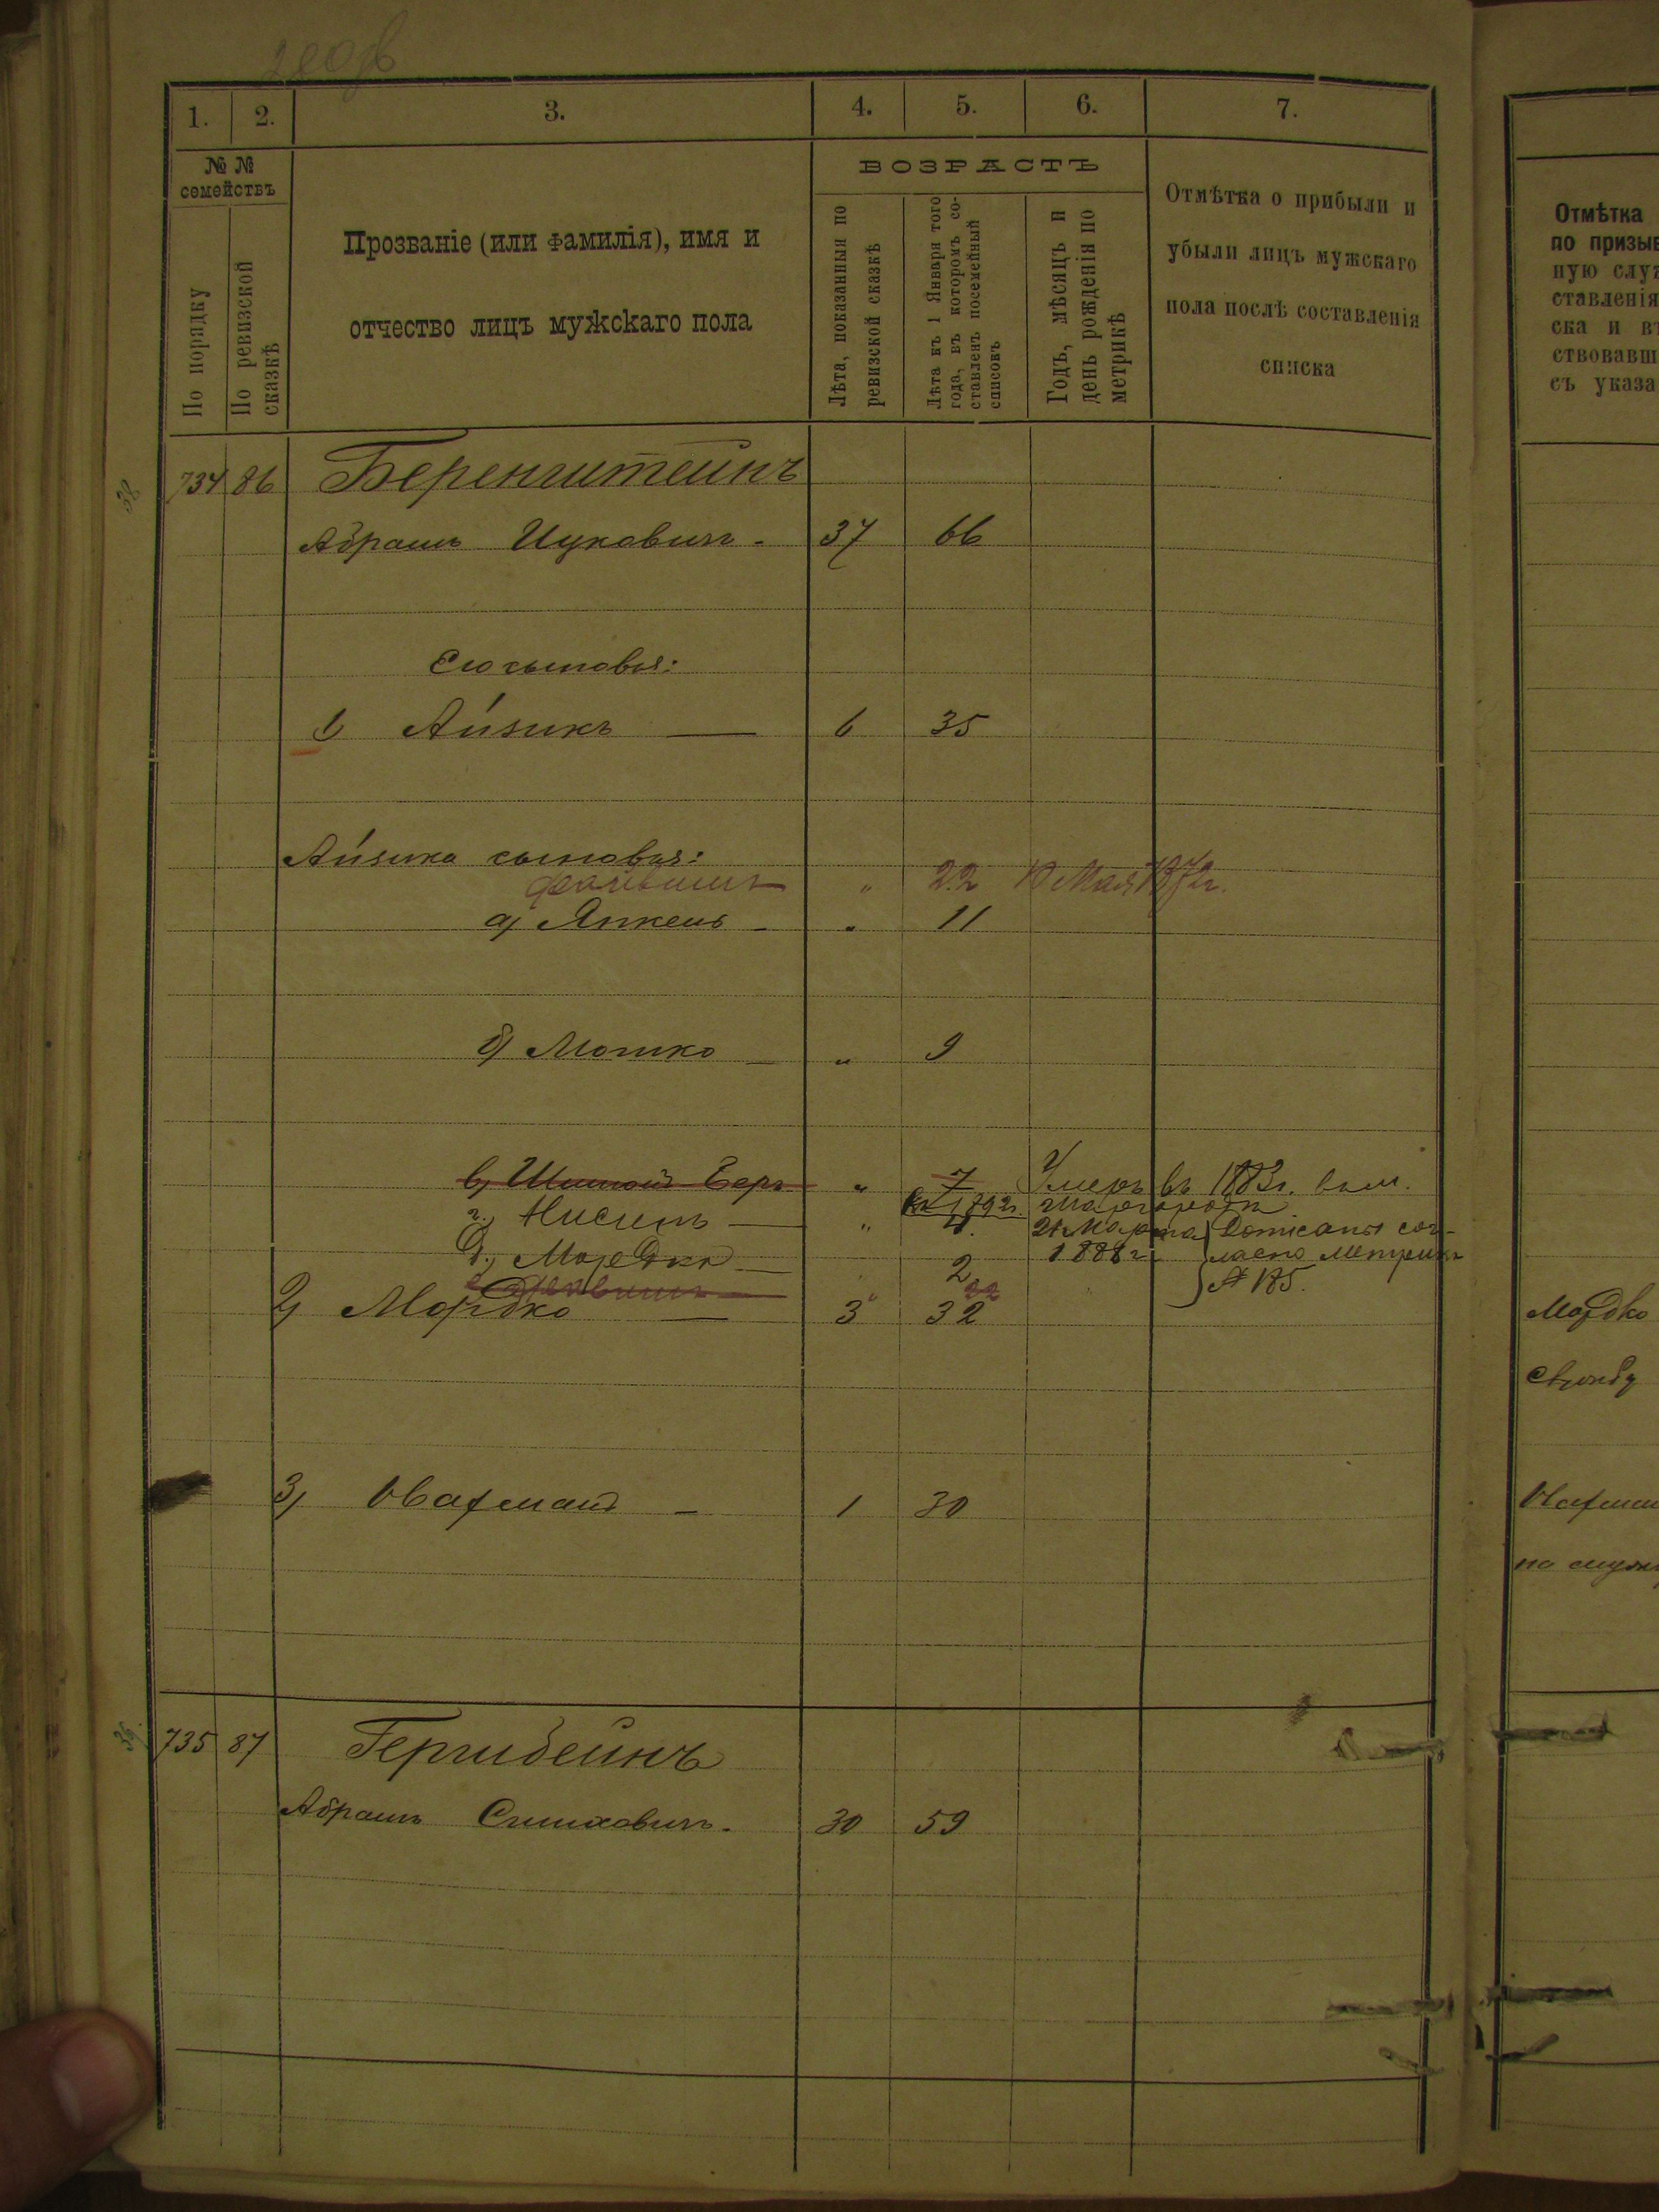 1. 2. 3. 4. 5. 6. 7.
№ №
семействъ
По порядку
По ревизской сказкѣ
Прозваніе (или фамилія), имя и
отчество лицъ мужскаго пола
ВОЗРАСТЪ
Лѣта, показанныя по
ревизской сказкѣ
Лѣта къ 1 Января того
года, въ которомъ со-
ставленъ посемейный
списокъ
Годъ, мѣсяцъ и
день рожденія по
метрикѣ
Отмѣтка о прибыли и
убыли лицъ мужскаго
пола послѣ составленія
списка
Отмѣтка
по призыв
ную служ
ставленія
ска и вт
ствовавш
съ указа
734 86 Беренштейнъ
Абрамъ Ицковичъ. 37 66
Его сыновья:
1) Айзикъ — 6 35
Айзика сыновья:
Файвишъ " 22 10 Мая 1872г.
а) Янкель - " 11
б) Мошко — " 9
в) Шимонъ Беръ " 7 Умеръ въ 1883г. въ м.
къ 1892г. Шаргородѣ
г.) Нисинъ — " 4. 24 Марта Дописаны сог-
д.) Мордко — 2 1888г. ласно метрики
№ 185.
22
2) Мордко — 3 32
Мордко
3) Нахманъ — 1 30
Нахман
по
735 87 Гершбейнъ
Абрамъ Симховичъ. 30 59